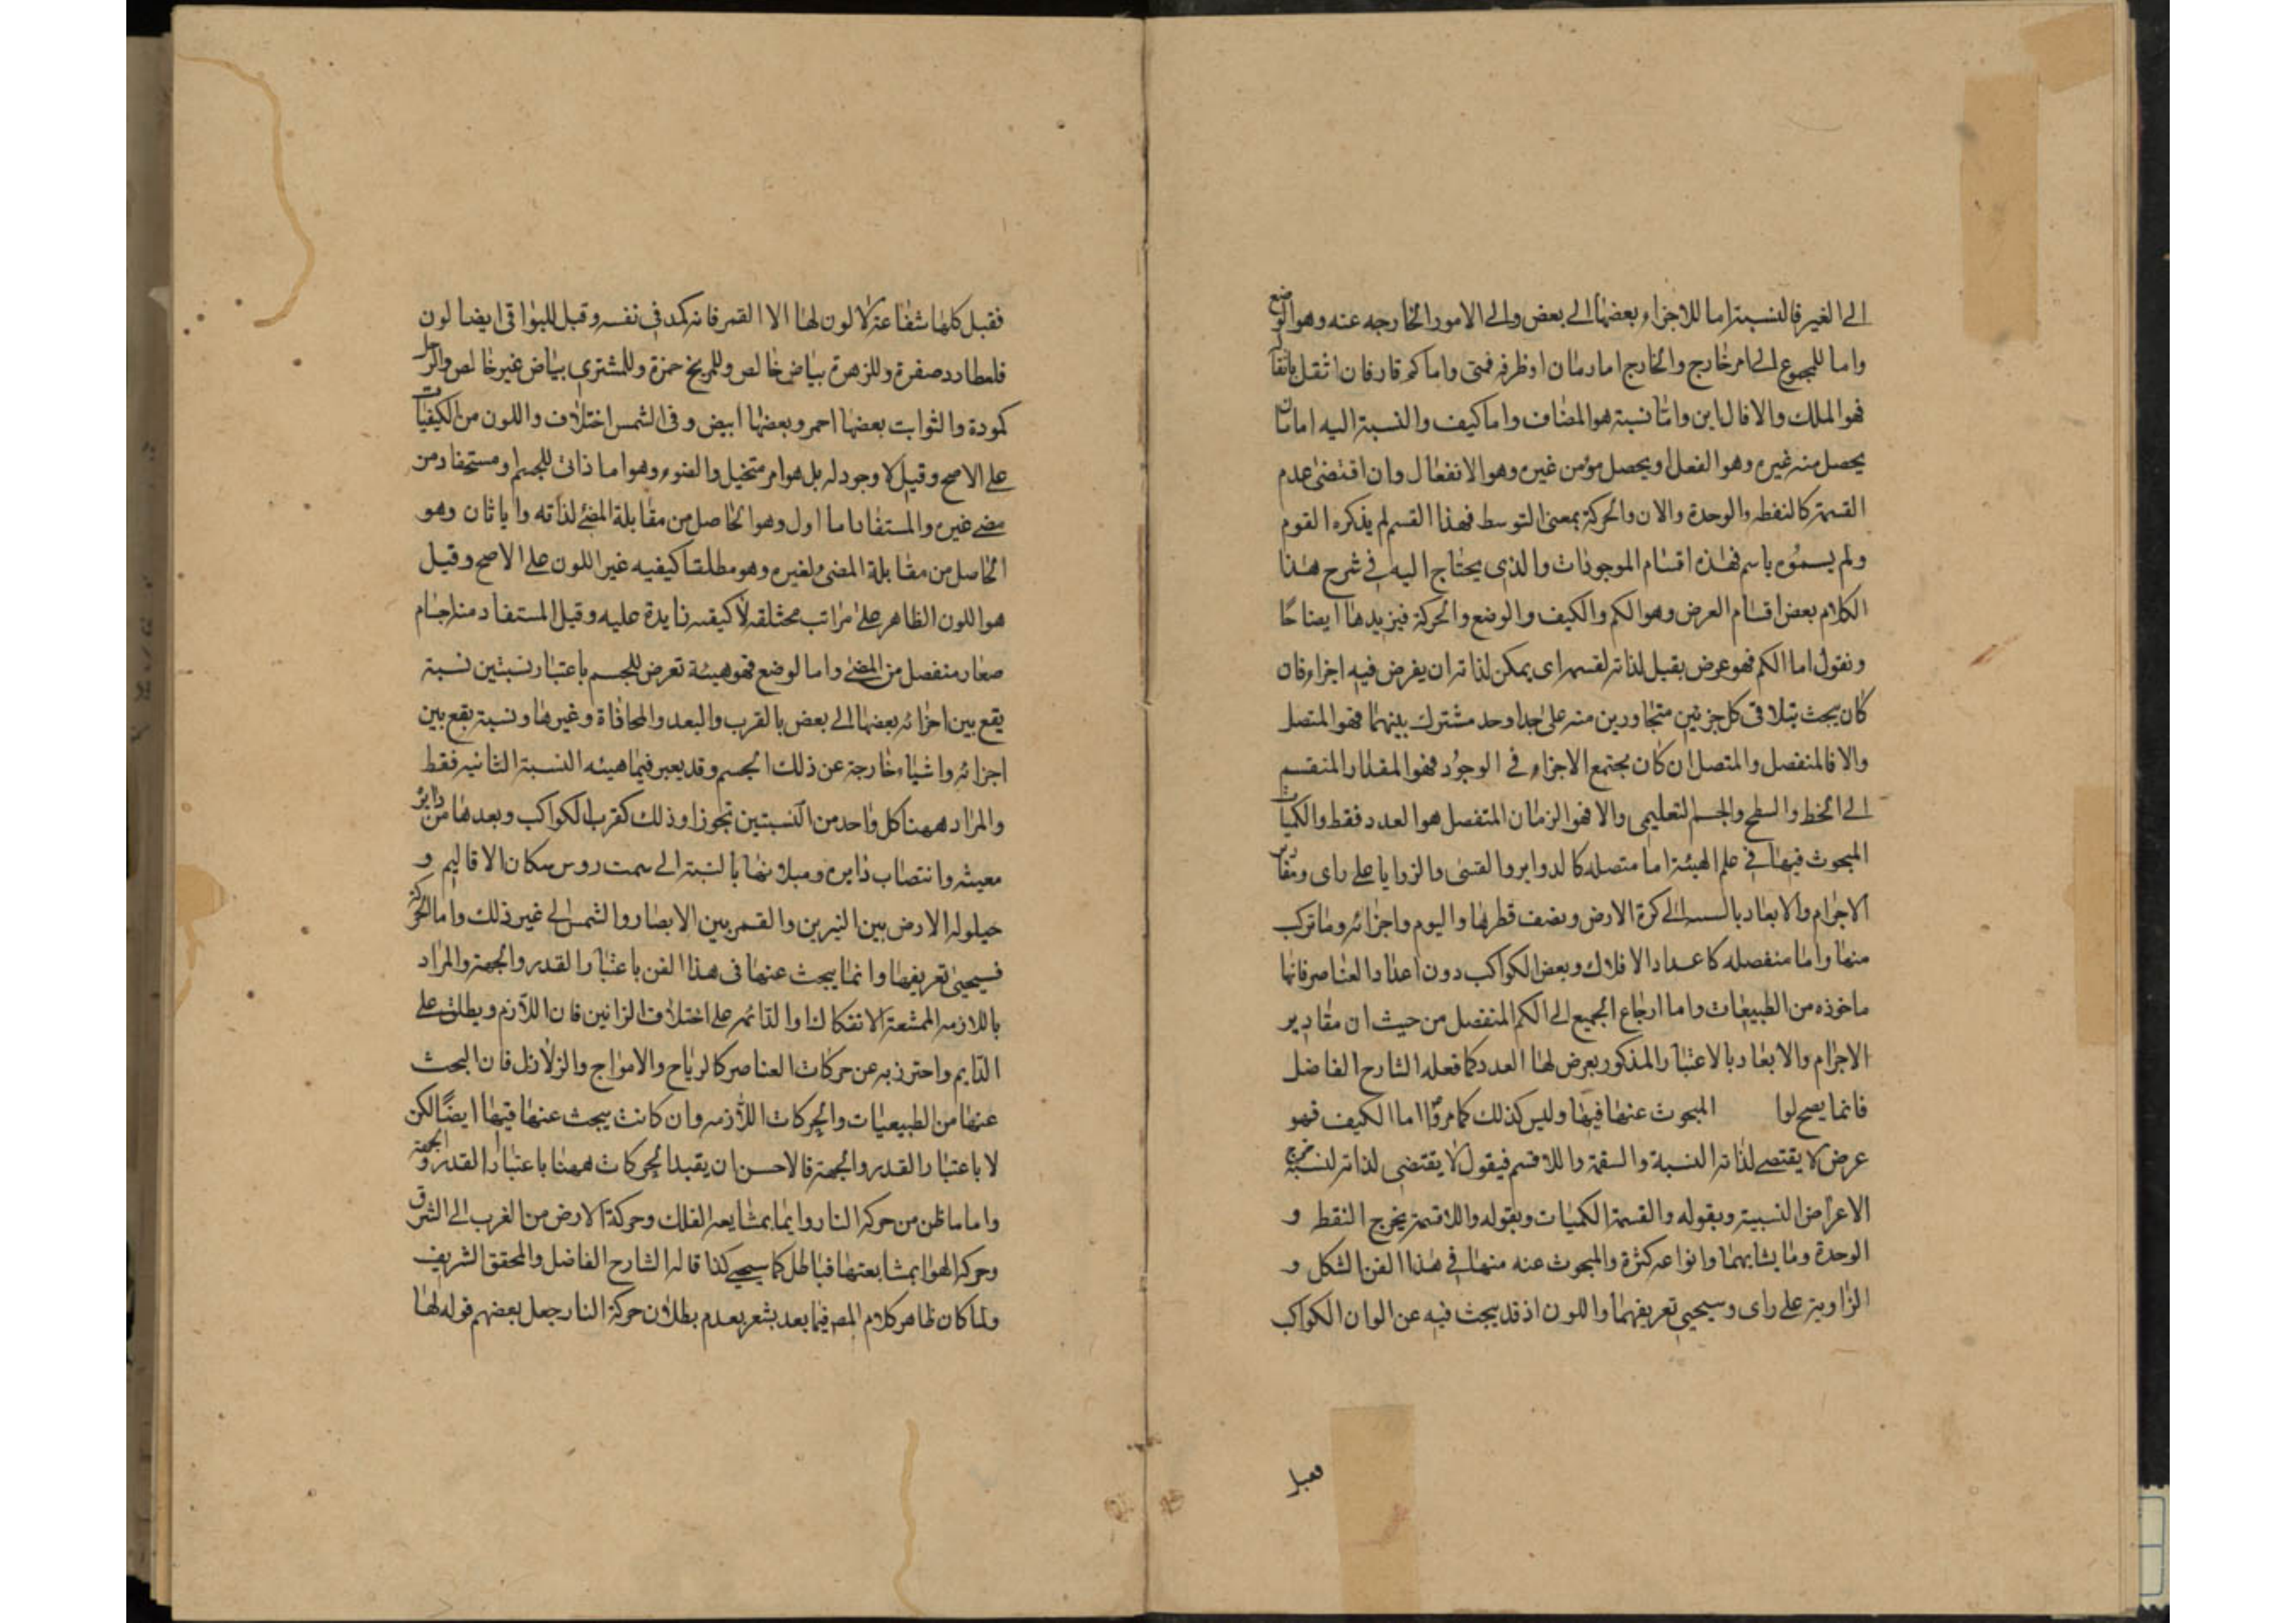 الى الغير فالنسبة اما للاجزاء بعضها الى بعض والى الامور الخارجه عنه وهو الوضع
واما للمجموع الى امر خارج والخارج اما زمان او ظرفه فمتى واما كم قار فان انتقل بانتقا
فهو الملك والا فالاين واما نسبة هو المضاف واما كيف والنسبة اليه اما بان
يحصل منه غيره وهو الفعل او يحصل هو من غيره وهو الانفعال وان اقتضى عدم
القسمة كالنقطه والوحدة والان والحركة بمعنى التوسط فهذا القسم لم يذكره القوم
ولم يسموه باسم فهذه اقسام الموجودات والذى يحتاج اليه في شرح هذا
الكلام بعض اقسام العرض وهو الكم والكيف والوضع والحركة فيزيدها ايضاحًا
ونقول اما الكم فهو عرض يقبل لذاته لقسمه اى يمكن لذاته ان يفرض فيه اجزاء فان
كان بحث يتلاقى كل جزئين متجاورين منه على حد واحد مشترك بينهما فهو المتصل
والا فالمنفصل والمتصل ان كان مجتمع الاجزاء في الوجود فهو المقدار المنقسم
الى الخط والسطح والجسم التعليمى والا فهو الزمان المنفصل هو العدد فقط والكميات
المبحوث فيها في علم الهيئة اما متصله كالدواير والقسى والزوايا على راى ومقادير
الاجرام والابعاد بالنسبه الى كرة الارض ونصف قطرها واليوم واجزائه وما تركب
منها واما منفصله كاعداد الافلاك وبعض الكواكب دون اعداد العناصر فانها
ماخوذه من الطبيعيات واما ارجاع الجميع الى الكم المنفصل من حيث ان مقادير
الاجرام والابعاد بالاعتبار المذكور يعرض لها العدد كما فعله الشارح الفاضل
فانما يصح لوا المبحوث عنها فيها وليس كذلك كما مر واما الكيف فهو
عرض لا يقتضى لذاته النسبة والسقمة واللا قسم فيقول لا يقتضى لذاته لنسبة يخرج
الاعراض النسبية وبقوله والقسمة الكميات وبقوله واللاقسمة يخرج النقط و
الوحدة وما يشابههما وانواعه كثرة والمبحوث عنه منها في هذا الفن الشكل و
الزاوية على راى وسيجيئ تعريفهما واللون اذ قد يبحث فيه عن الوان الكواكب
فقيل
فقيل كلها شفاعة لا لون لها الا القمر فانه كمد في نفسه وقيل للبواقى ايضا لون
فلعطارد صفرة وللزهرة بياض خالص وللمريخ حمزة وللمشترى بياض غير خالص والزحل
كمودة والثوابت بعضها احمر وبعضها ابيض وفى الشمس اختلاف واللون من الكيفيات
على الاصح وقيل لا وجود له بل هو امر متخيل والضوء وهو اما ذاتى للجسم او مستفاد من
مضى غيره والمستفاد اما اول وهو الحاصل من مقابلة المضئ لذاته واما ثان وهو
الحاصل من مقابلة المضى لغيره وهو مطلقا كيفيه غير اللون على الاصح وقيل
هو اللون الظاهر على مراتب مختلفه لا كيفيه زايدة عليه وقيل المستفاد منه اجسام
صغار منفصل من المضئ واما لوضع فهو هيئة تعرض للجسم باعتبار نسبتين نسبة
يقع بين اجزائه بعضها الى بعض بالقرب والبعد والمحاذاة وغيرها ونسبة يقع بين
اجزائه واشياء خارجة عن ذلك الجسم وقد يعبر فيها هيئه النسبة الثانيه فقط
والمراد ههنا كل واحد من النسبتين تجوزا وذلك كقرب الكواكب وبعدها من دائر
معيشه وانتصاب دايره وميلانها بالنسبة الى سمت روس سكان الاقاليم و
حيلوله الارض بين النيرين والقمر بين الابصار والشمس الى غير ذلك واما الحركة
فسيجئ تعريفها وانما يبحث عنها فى هذا الفن باعتبار القدر والجهة والمراد
باللازمه الممتنعة الانفكاك او الدائمه على اختلاف الرائين فان اللازم ويطلق على
الدايم واحترز به عن حركات العناصر كالرياح والامواج والزلازل فان البحث
عنها من الطبيعيات والحركات اللازمه وان كانت يبحث عنها فيها ايضًا لكن
لا باعتبار القدر والجهة فالاحسن ان يقيد الحركات ههنا باعتبار القدر والجهة
واما ما ظن من حركة النار دايما بمشايعه الفلك وحركة الارض من الغرب الى الشرق
وحركة الهوا بمشابعتها فباطل كما سيجى كذا قاله الشارح الفاضل والمحقق الشريف
ولما كان ظاهر كلام المص فيما بعد يشعر بعدم بطلان حركة النار جعل بعضهم قوله لها